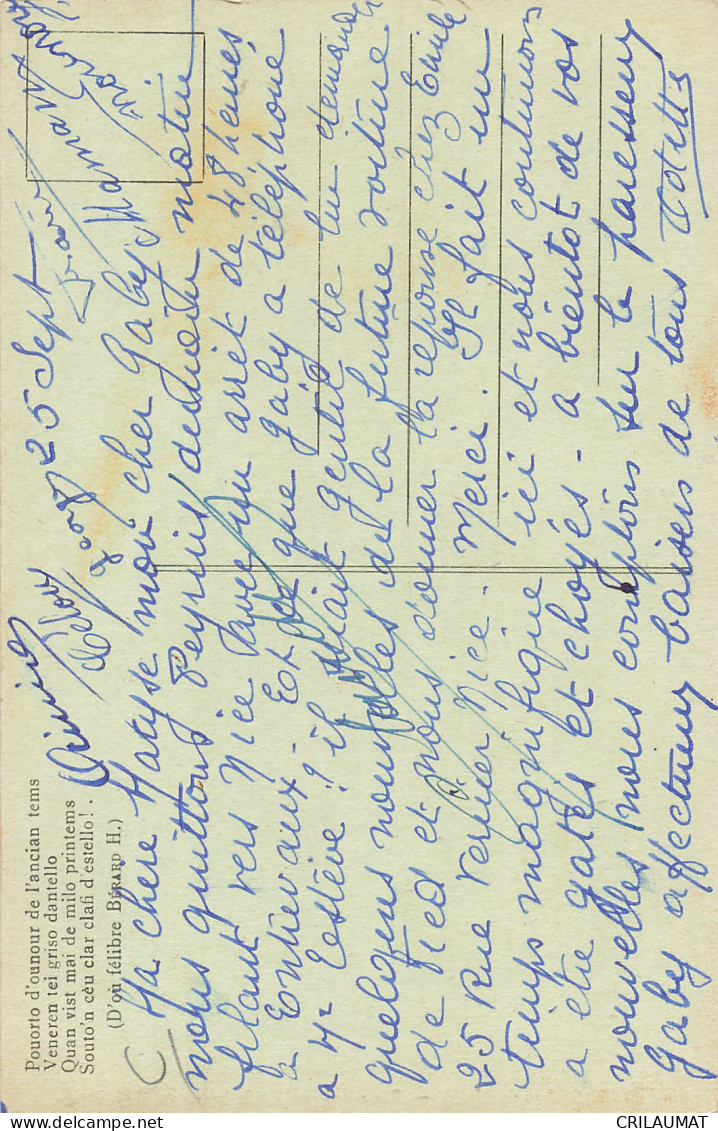 Pouorto d'ounour de l'ancian tems
Veneren tei griso dantello
Quan vist mai de milo printems
Souto'n cèu clar clafi d'estello ! .
(D'où félibre BÉRARD H.)
25 Sept
Ma chère Matyse mon cher Gaby
nous quittons Peyruis demain matin
filant vers Nice avec un arrêt de 48 heures
a Entrevaux - Est ce que Gaby a téléphoné
a Mr Estève ? il serait gentil de lui demander
quelques nouvelles de la future voiture
de Fred et nous donner la réponse chez Emile
25 Rue Vernier Nice. Merci. Il fait un
temps magnifique ici et nous continuons
a etre gatés et choyés - a bientot de vos
nouvelles nous comptons sur le paresseux
Gaby affectueux baisers de tous
Maman
CRILAUMAT